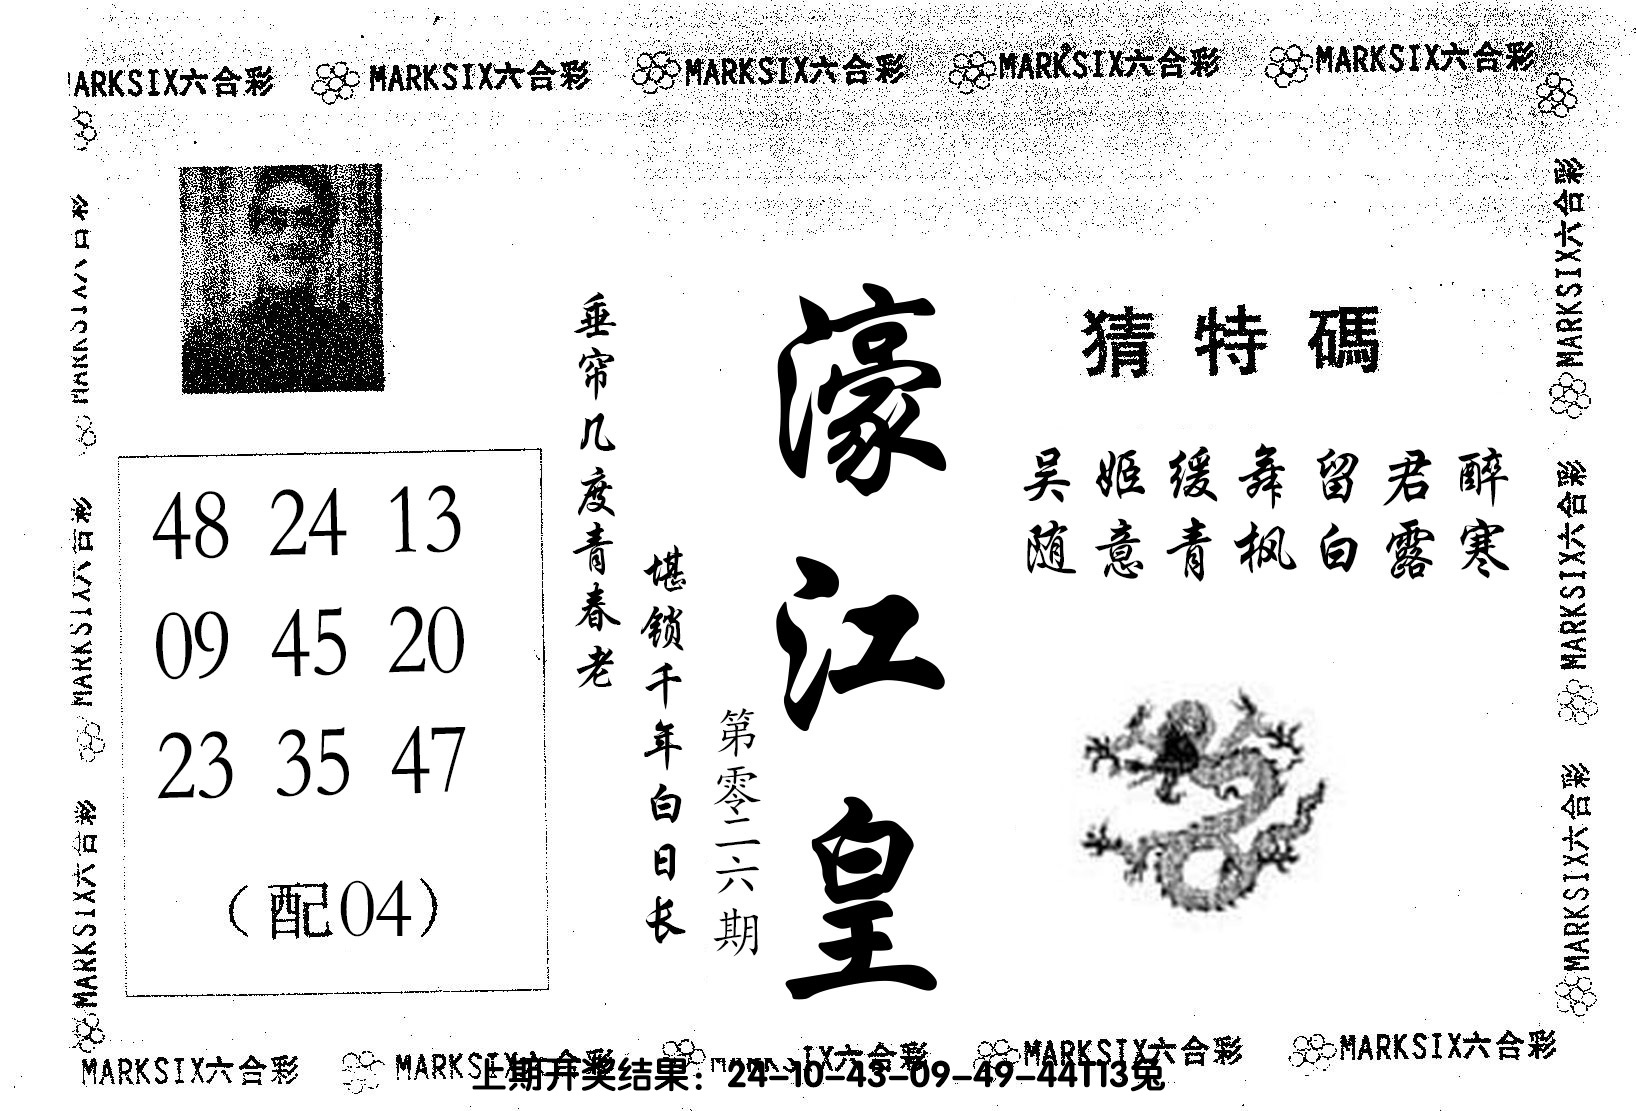 MARKSIX六合彩 MARKSIX六合彩 MARKSIX六合彩 MARKSIX六合彩 MARKSIX六合彩
MARKSIX六合彩
MARKSIX六合彩
MARKSIX六合彩
猜特碼
吴姬缓舞留君醉
随意青枫白露寒
濠江皇
第零二六期
垂帘几度青春老
堪锁千年白日长
48 24 13
09 45 20
23 35 47
（配04）
MARKSIX六合彩
MARKSIX六合彩
MARKSIX六合彩
MARKSIX六合彩 MARKSIX六合彩 MARKSIX六合彩 MARKSIX六合彩 MARKSIX六合彩
上期开奖结果：24-10-43-09-49-44T13兔